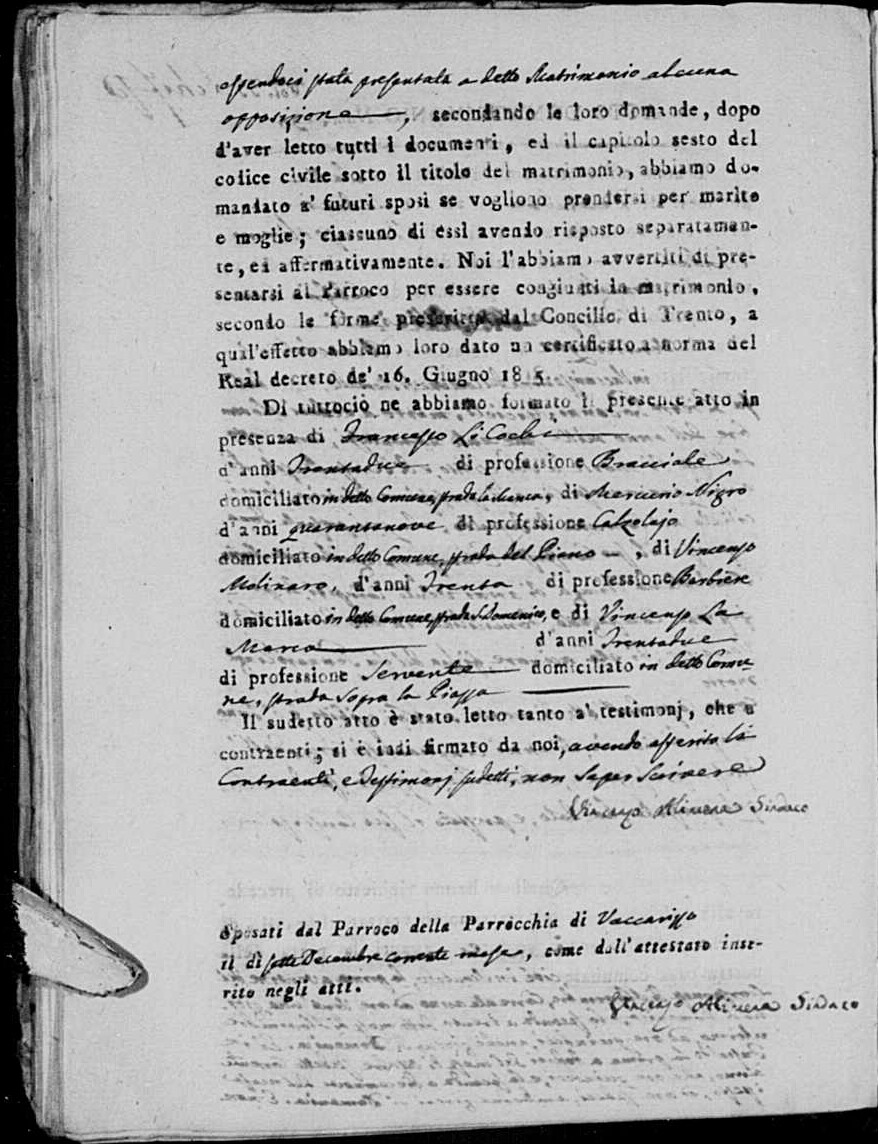 essendoci stata presentata a detto Matrimonio alcuna
opposizione, secondando le loro domande, dopo
d'aver letto tutti i documenti, ed il capitolo sesto del
codice civile sotto il titolo del matrimonio, abbiamo do-
mandato a' futuri sposi se vogliono prendersi per marito
e moglie; ciascuno di essi avendo risposto separatamen-
te, ed affermativamente. Noi l'abbiamo avvertiti di pre-
sentarsi al Parroco per essere congiunti in matrimonio,
secondo le forme prescritte dal Concilio di Trento, a
qual'effetto abbiamo loro dato un certificato a norma del
Real decreto de' 16. Giugno 1815
Di tuttociò ne abbiamo formato il presente atto in
presenza di Francesco Li Cochi
d'anni Trentadue di professione Bracciale
domiciliato in detto Comune, strada la Manca, di Mercurio Nigro
d'anni quarantanove di professione Calzolajo
domiciliato in detto Comune, strada del Piano, di Vincenzo
Molinaro, d'anni Trenta di professione Barbiere
domiciliato in detto Comune, strada S. Domenico, e di Vincenzo La
Marca d'anni Trentadue
di professione Servente domiciliato in detto Comu-
ne, strada Sopra la Piazza
Il sudetto atto è stato letto tanto a' testimonj, che a
contraenti; si è indi firmato da noi, avendo asserito li
Contraenti, e Testimonj sudetti, non Saper Scrivere
Vincenzo Minera Sindaco
Sposati dal Parroco della Parrocchia di Vaccarizzo
il dì sette Decembre corrente mese, come dall'attestato inse-
rito negli atti.
Vincenzo Minera Sindaco